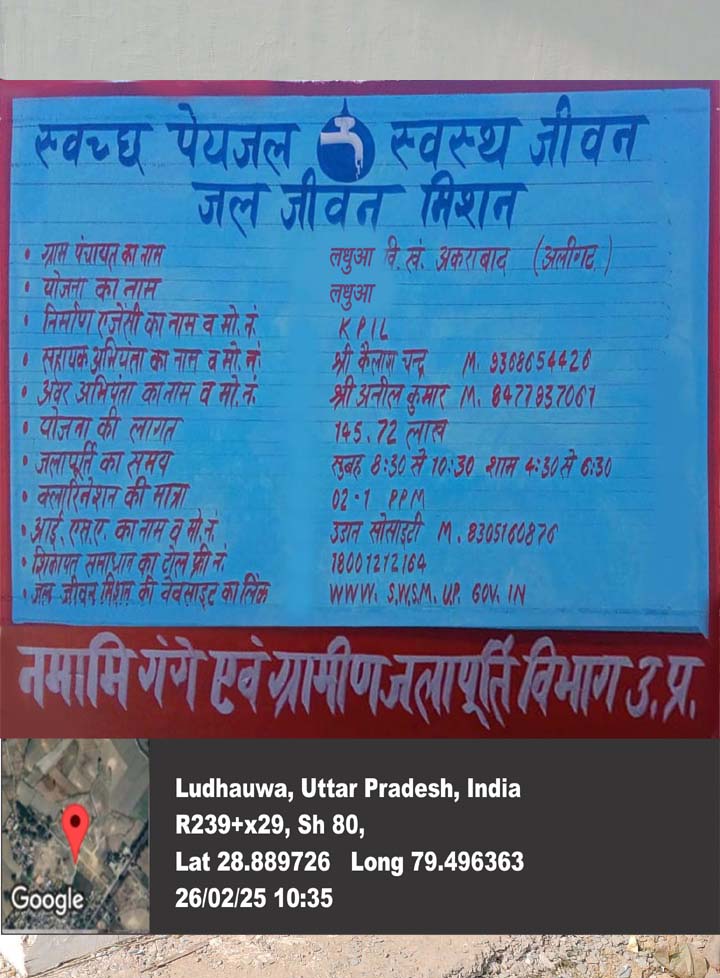 स्वच्छ पेयजल स्वस्थ जीवन
जल जीवन मिशन
• ग्राम पंचायत का नाम लधुआ वि. खं. अकराबाद (अलीगढ)
• योजना का नाम लधुआ
• निर्माण एजेंसी का नाम व मो. नं. KPIL
• सहायक अभियंता का नाम व मो. नं. श्री कैलाश चन्द्र M. 9368654426
• अवर अभियंता का नाम व मो. नं. श्री अनील कुमार M. 8477837061
• योजना की लागत 145.72 लाख
• जलापूर्ति का समय सुबह 8:30 से 10:30 शाम 4:30 से 6:30
• क्लोरिनेशन की मात्रा 02-1 PPM
• आई. एस. ए. का नाम व मो. नं. उडान सोसाइटी M. 8305160876
• शिकायत समाधान का टोल फ्री नं. 18001212164
• जल जीवन मिशन की वेबसाइट का लिंक WWW. S.W.S.M. U.P. GOV. IN
नमामि गंगे एवं ग्रामीण जलापूर्ति विभाग उ. प्र.
Ludhauwa, Uttar Pradesh, India
R239+x29, Sh 80,
Lat 28.889726 Long 79.496363
26/02/25 10:35
Google